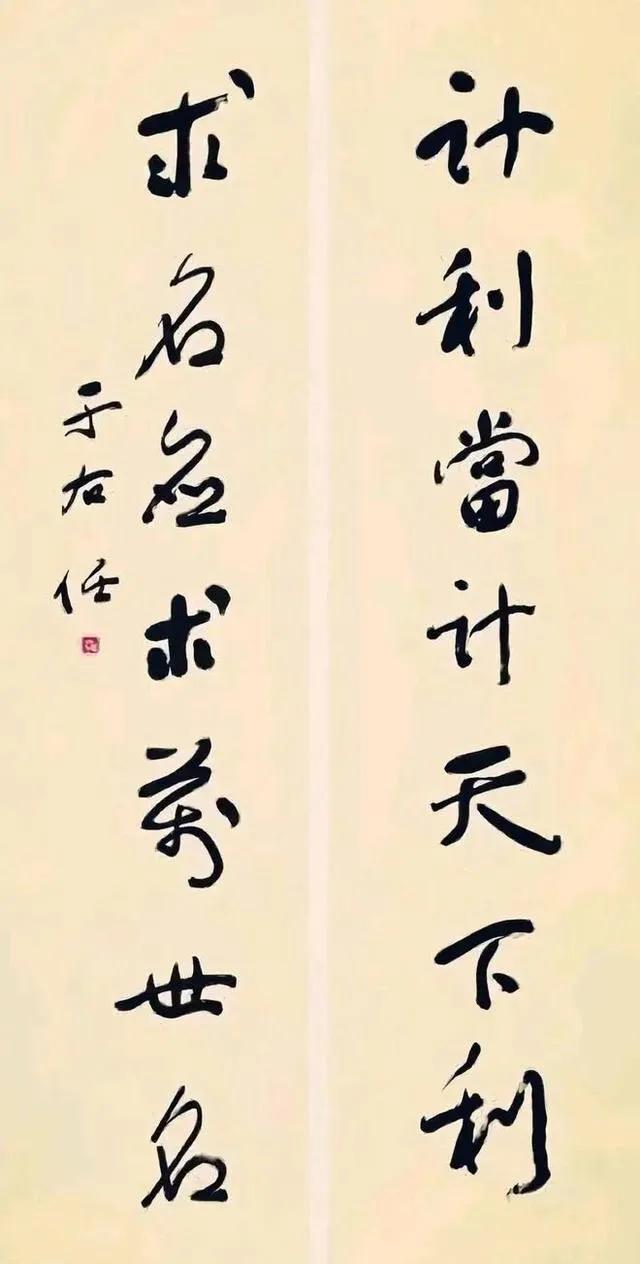 計利當計天下利
求名應求萬世名
于右任